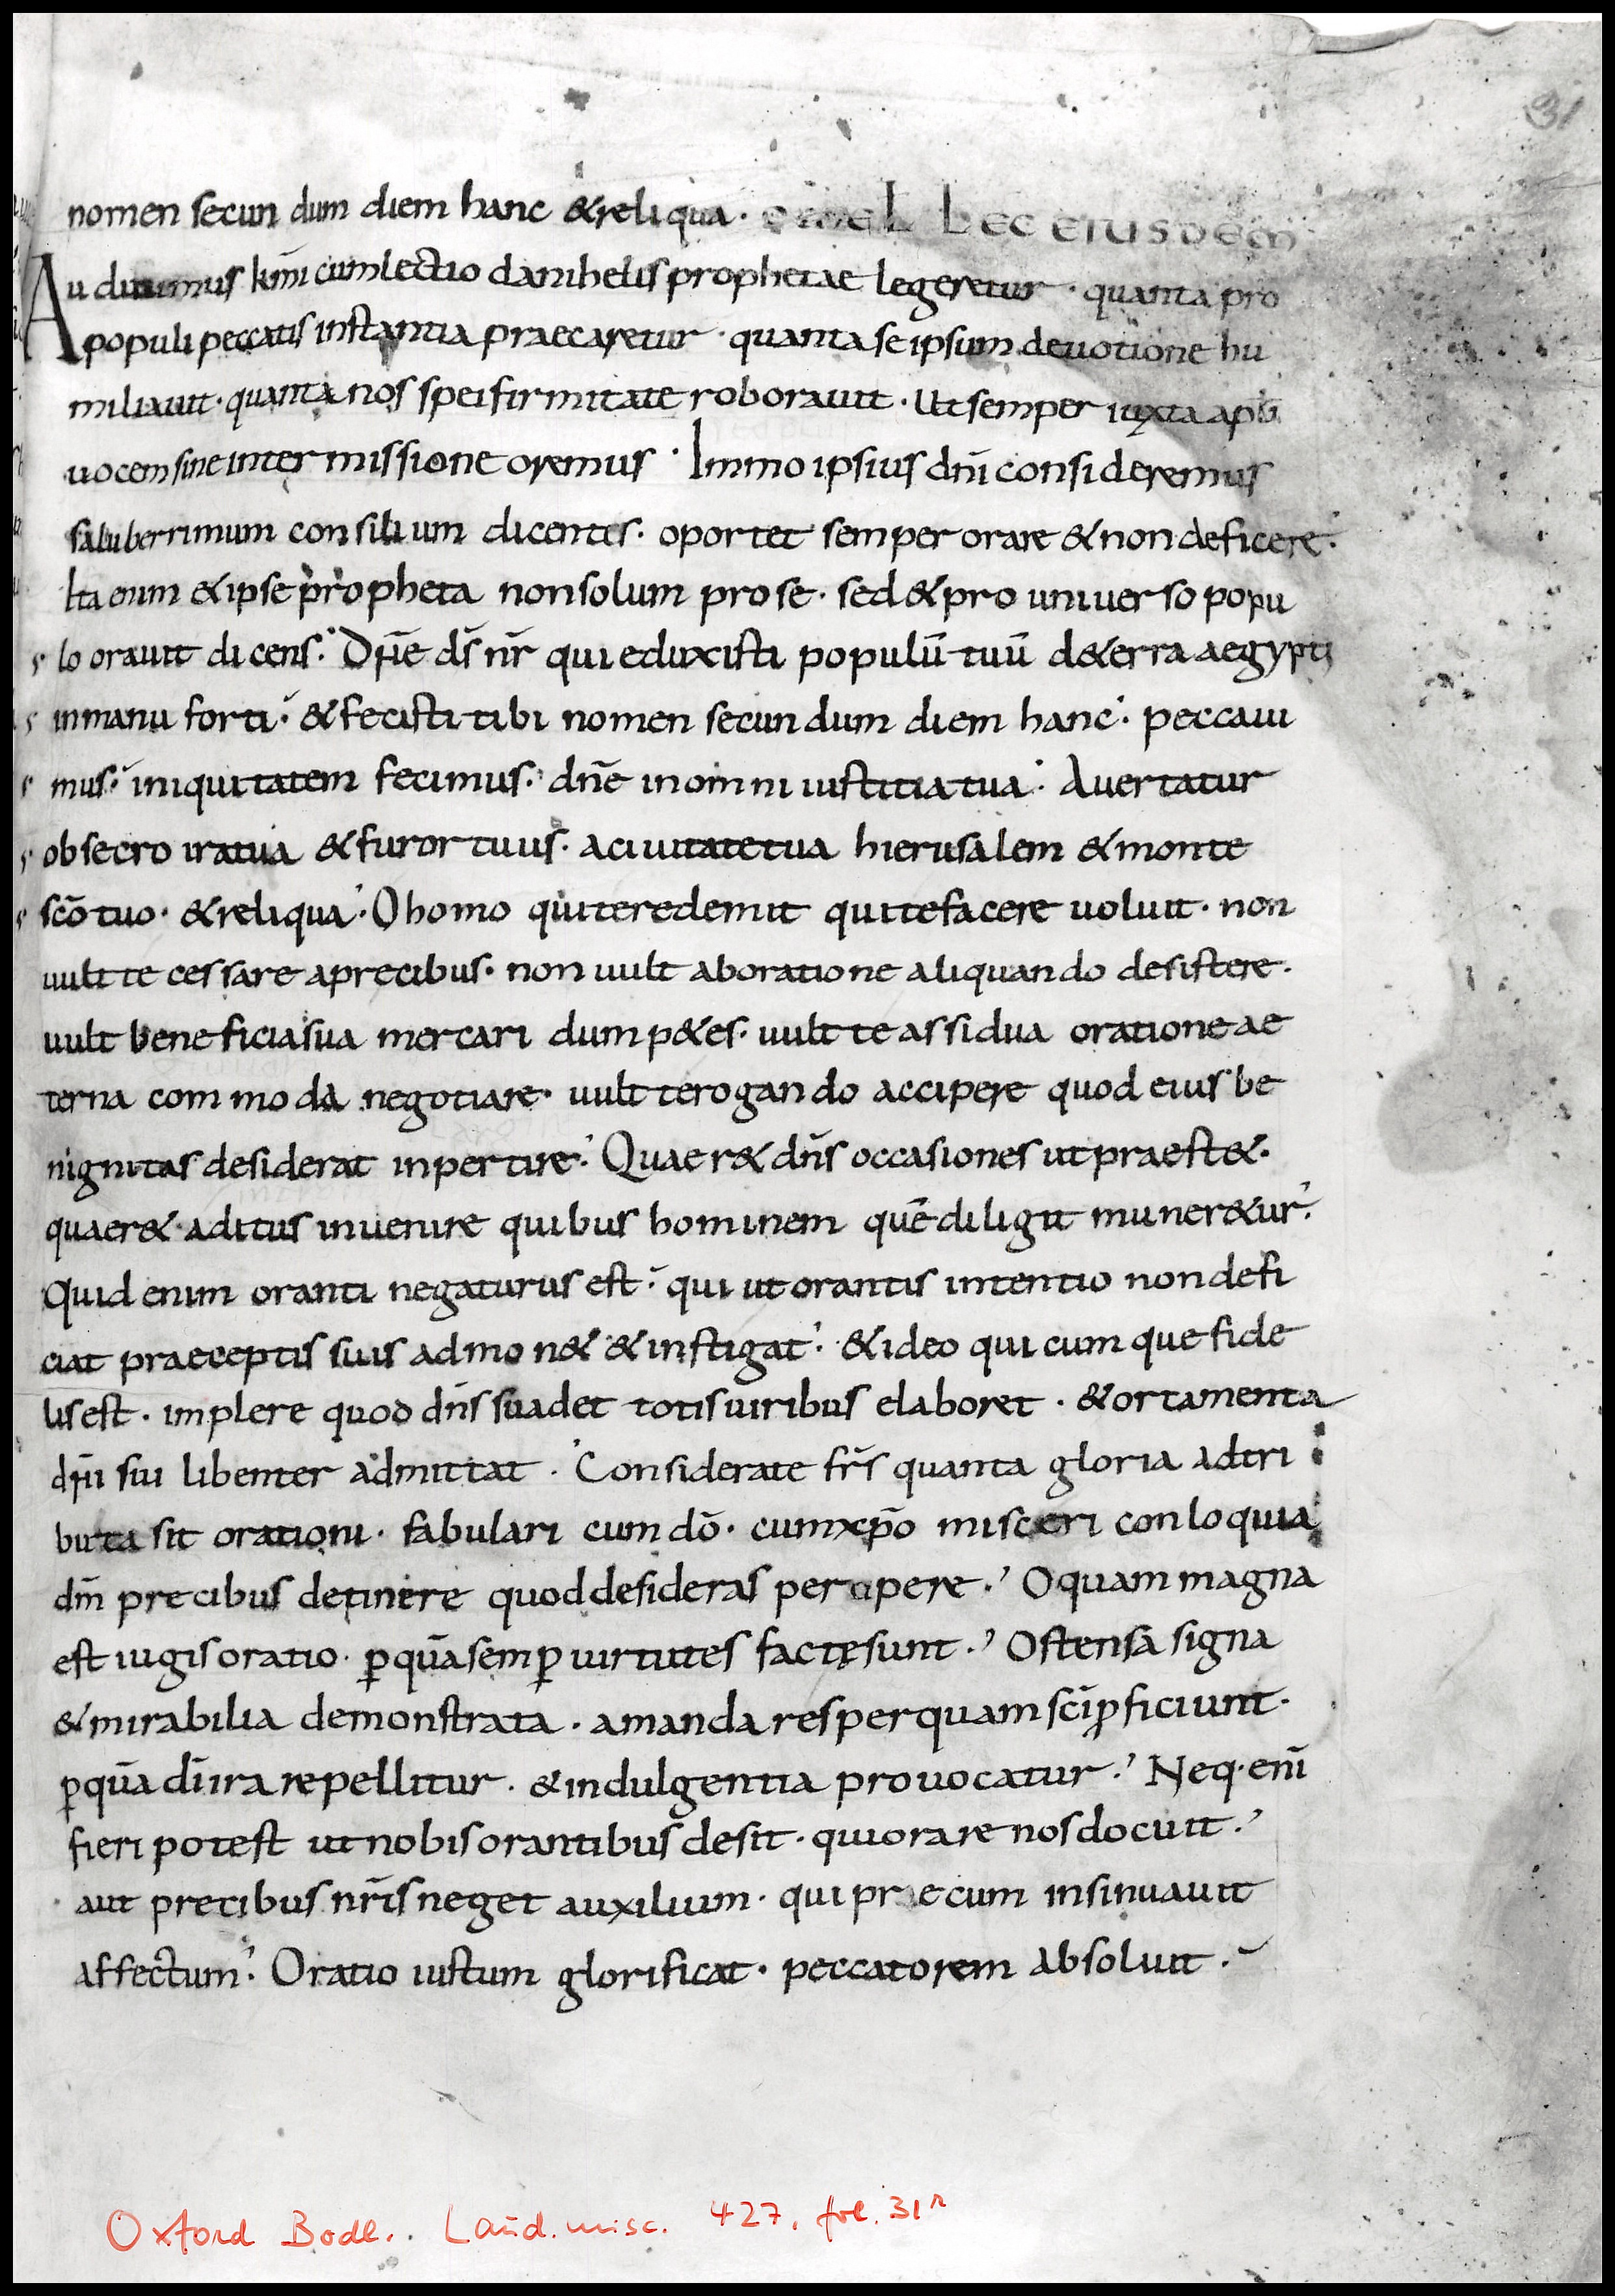 31
nomen secundum diem hanc & reliqua· OMEL LEC EIUSDEM
Audiuimus km̄i cum lectio danihelis prophetae legeretur · quanta pro
populi peccatis instantia praecaretur · quanta se ipsum deuotione hu
miliauit · quanta nos spei firmitate roborauit · Ut semper iuxta apli
uocem sine intermissione oremus · Immo ipsius dn̄i consideremus
saluberrimum consilium dicentis· oportet semper orare & non deficere·
Ita enim & ipse propheta non solum pro se· sed & pro uniuerso popu
lo orauit dicens· Dn̄e ds̄ nr̄ qui eduxisti populū tuū de terra aegypti
in manu forti· & fecisti tibi nomen secundum diem hanc· peccaui
mus· iniquitatem fecimus· dn̄e in omni iustitia tua· Auertatur
obsecro ira tua & furor tuus· a ciuitate tua hierusalem & monte
scō tuo· & reliqua· O homo qui te redemit qui te facere uoluit· non
uult te cessare a precibus· non uult ab oratione aliquando desistere·
uult beneficia sua mercari dum p&es· uult te assidua oratione ae
terna commoda negotiare· uult te rogando accipere quod eius be
nignitas desiderat inpertire· Quaer& dn̄s occasiones ut praest&·
quaer& aditus inuenire quibus hominem quē diligit muner&ur·
Quid enim oranti negaturus est· qui ut orantis intentio non defi
ciat praeceptis suis admon& & instigat· & ideo quicumque fide
lis est· implere quod dn̄s suadet totis uiribus elaboret · & ortamenta
dn̄i sui libenter admittat · Considerate fr̄s quanta gloria adtri
buta sit orationi· fabulari cum dō· cum xp̄o misceri conloquia
dm̄ precibus detinere quod desideras percipere· O quam magna
est iugis oratio· ꝑ quā semꝑ uirtutes factę sunt· Ostensa signa
& mirabilia demonstrata· amanda res per quam sc̄i ꝑficiunt·
ꝑ quā dī ira repellitur· & indulgentia prouocatur· Neq· enī
fieri potest ut nobis orantibus desit· qui orare nos docuit·
aut precibus nr̄is neget auxilium· qui praecum insinuauit
affectum· Oratio iustum glorificat· peccatorem absoluit·
Oxford Bodl. Laud. misc. 427, fol. 31r